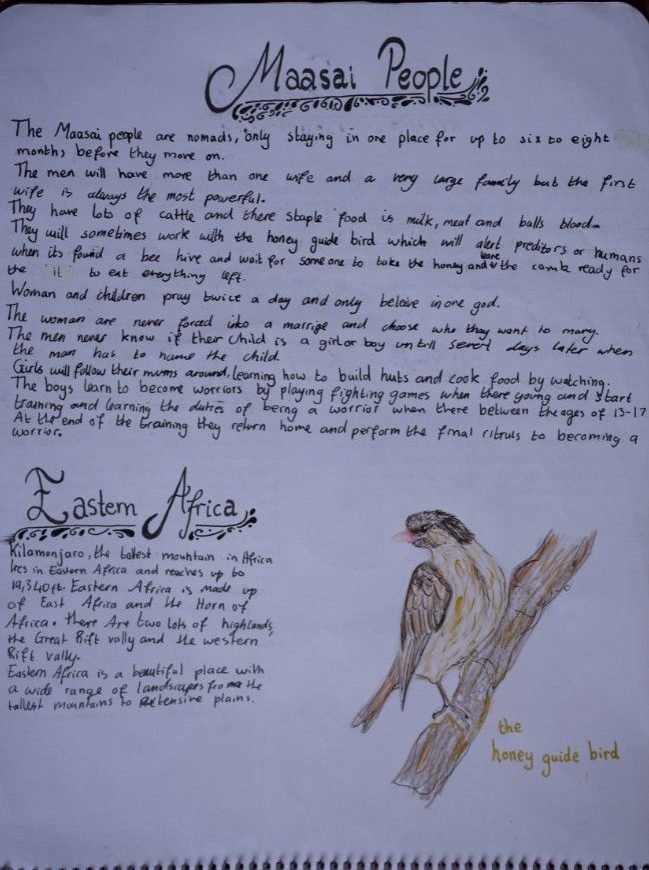 Maasai People
The Maasai people are nomads, only staying in one place for up to six to eight
months before they move on.
The men will have more than one wife and a very large family but the first
wife is always the most powerful.
They have lots of cattle and there staple food is milk, meat and bulls blood.
They will sometimes work with the honey guide bird which will alert preditors or humans
when its found a bee hive and wait for someone to take the honey and leave the comb ready for
the to eat everything left.
Woman and children pray twice a day and only beleive in one god.
The woman are never forced into a marrige and choose who they want to marry.
The men never know if their child is a girl or boy untill days later when
the man has to name the child.
Girls will follow their mums around, learning how to build huts and cook food by watching.
The boys learn to become worriors by playing fighting games when there young and start
training and learning the duties of being a worrior when there between the ages of 13-17
At the end of the training they return home and perform the final rituls to becoming a
worrior.
Eastern Africa
Kilamonjaro, the tallest mountain in Africa
lies in Eastern Africa and reaches up to
19,340ft. Eastern Africa is made up
of East Africa and the Horn of
Africa. there Are two lots of highlands,
the Great Rift vally and the western
Rift vally.
Eastern Africa is a beautiful place with
a wide range of landscapes from the
tallest mountains to extensive plains.
the
honey guide bird